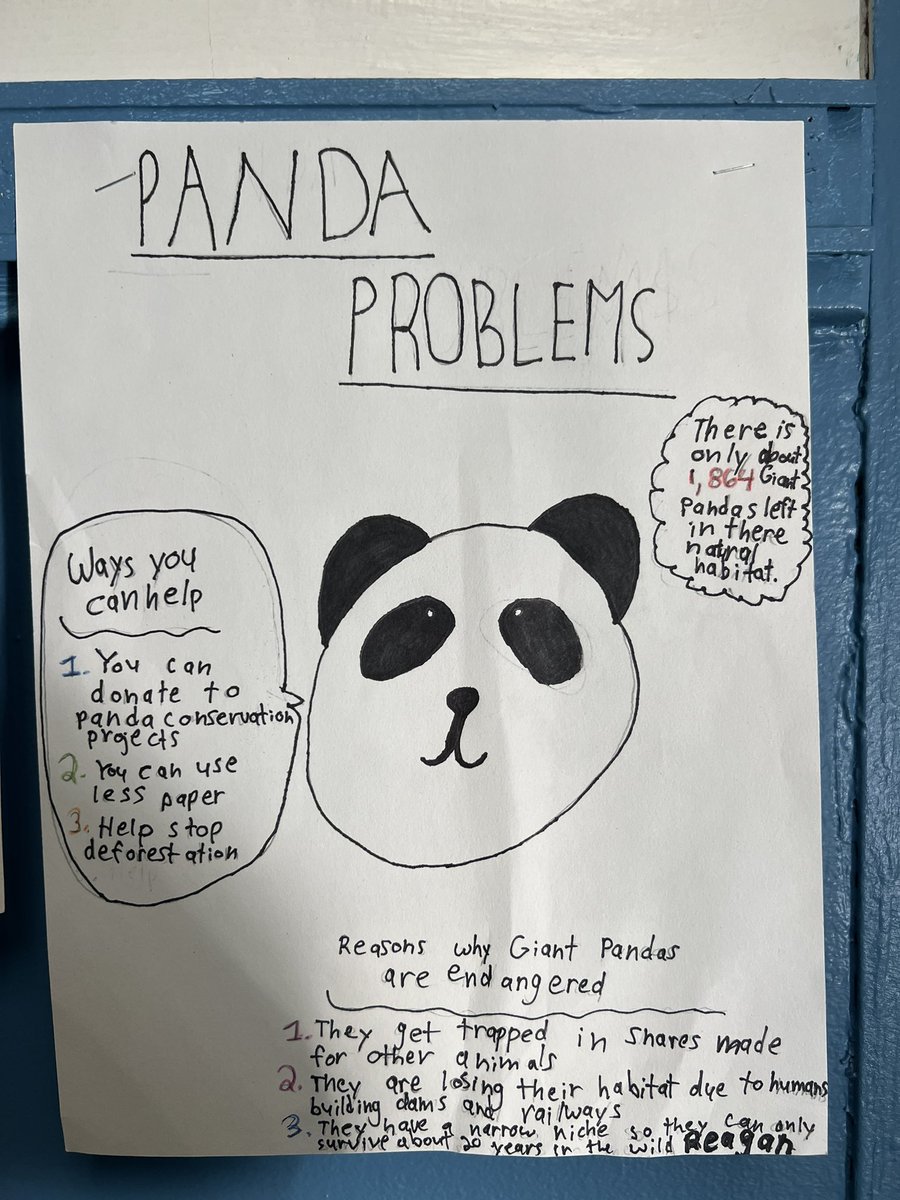 PANDA
PROBLEMS
There is
only about
1,864 Giant
Pandas left
in there
natural
habitat.
Ways you
can help
1. You can
donate to
panda conservation
projects
2. You can use
less paper
3. Help stop
deforestation
Reasons why Giant Pandas
are endangered
1. They get trapped in snares made
for other animals
2. They are losing their habitat due to humans
building dams and railways
3. They have a narrow niche so they can only
survive about 20 years in the wild Reagan